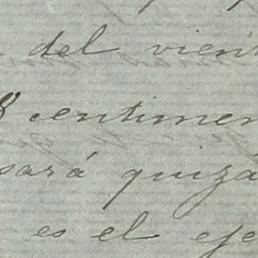 del vient
8 centimen
sará quizá
es el eje